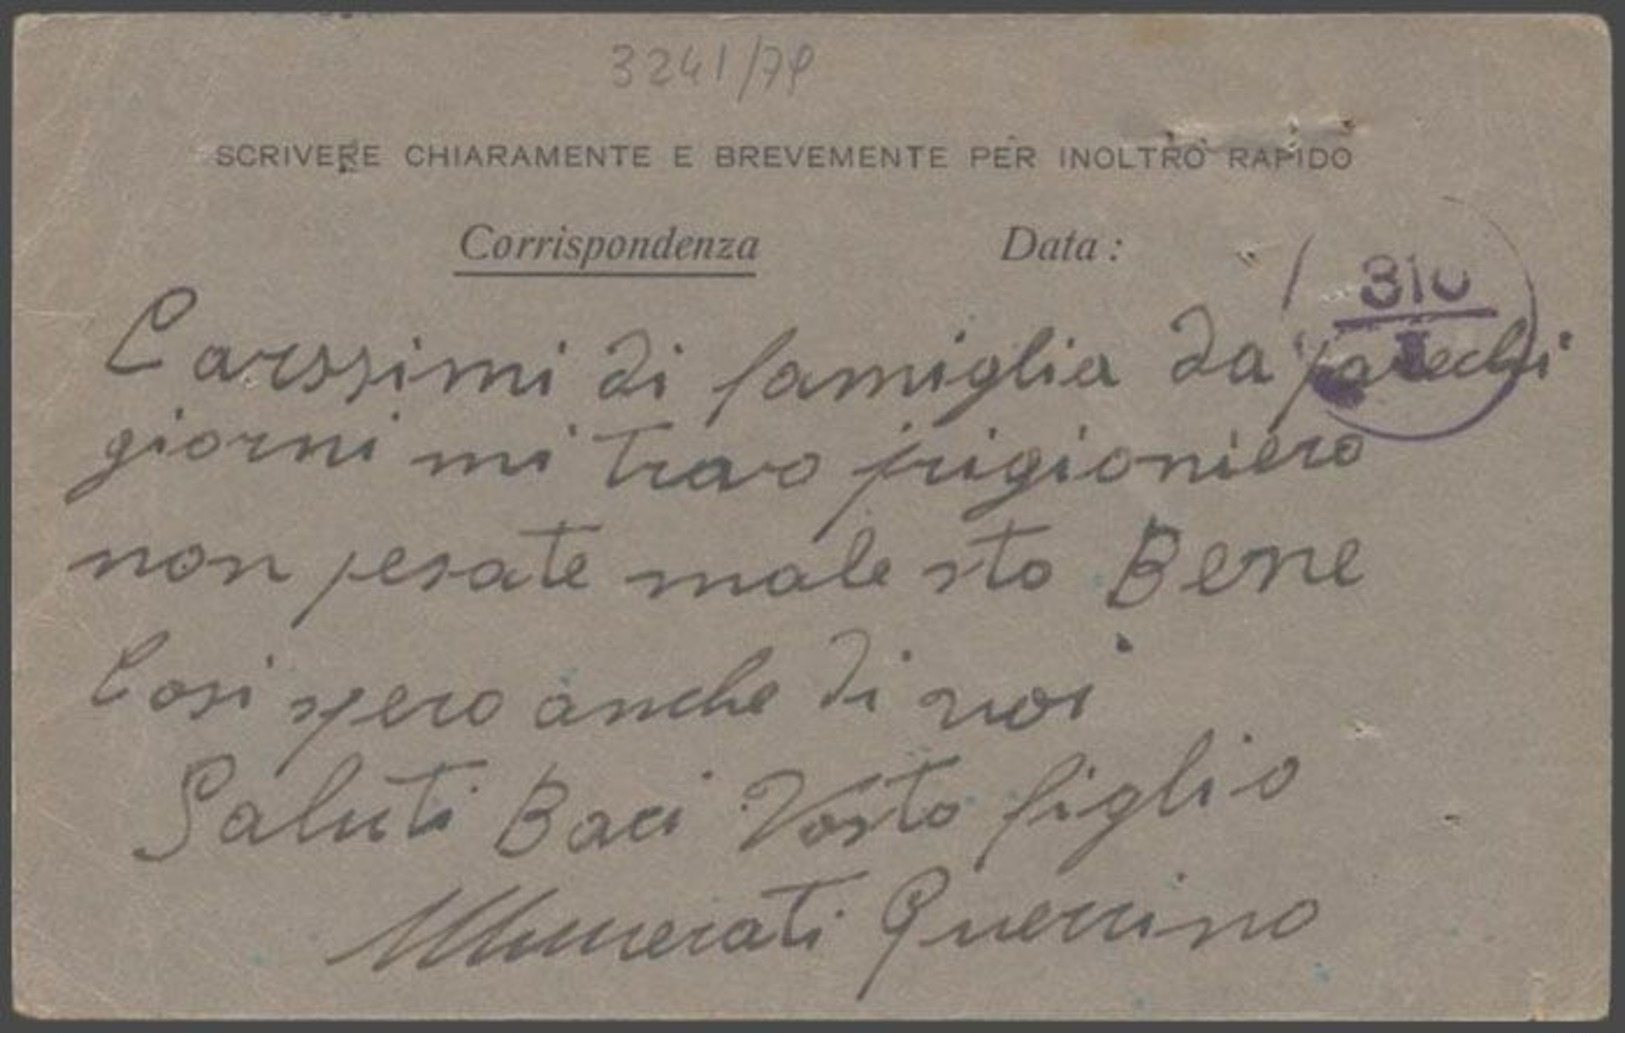 3241/79
SCRIVERE CHIARAMENTE E BREVEMENTE PER INOLTRO RAPIDO
Corrispondenza Data :
310
I
Carssimi di famiglia da parechi
giorni mi trovo prigioniero
non pesate male sto Bene
Cosi spero anche di voi
Saluti Baci Vosto figlio
Guerrino